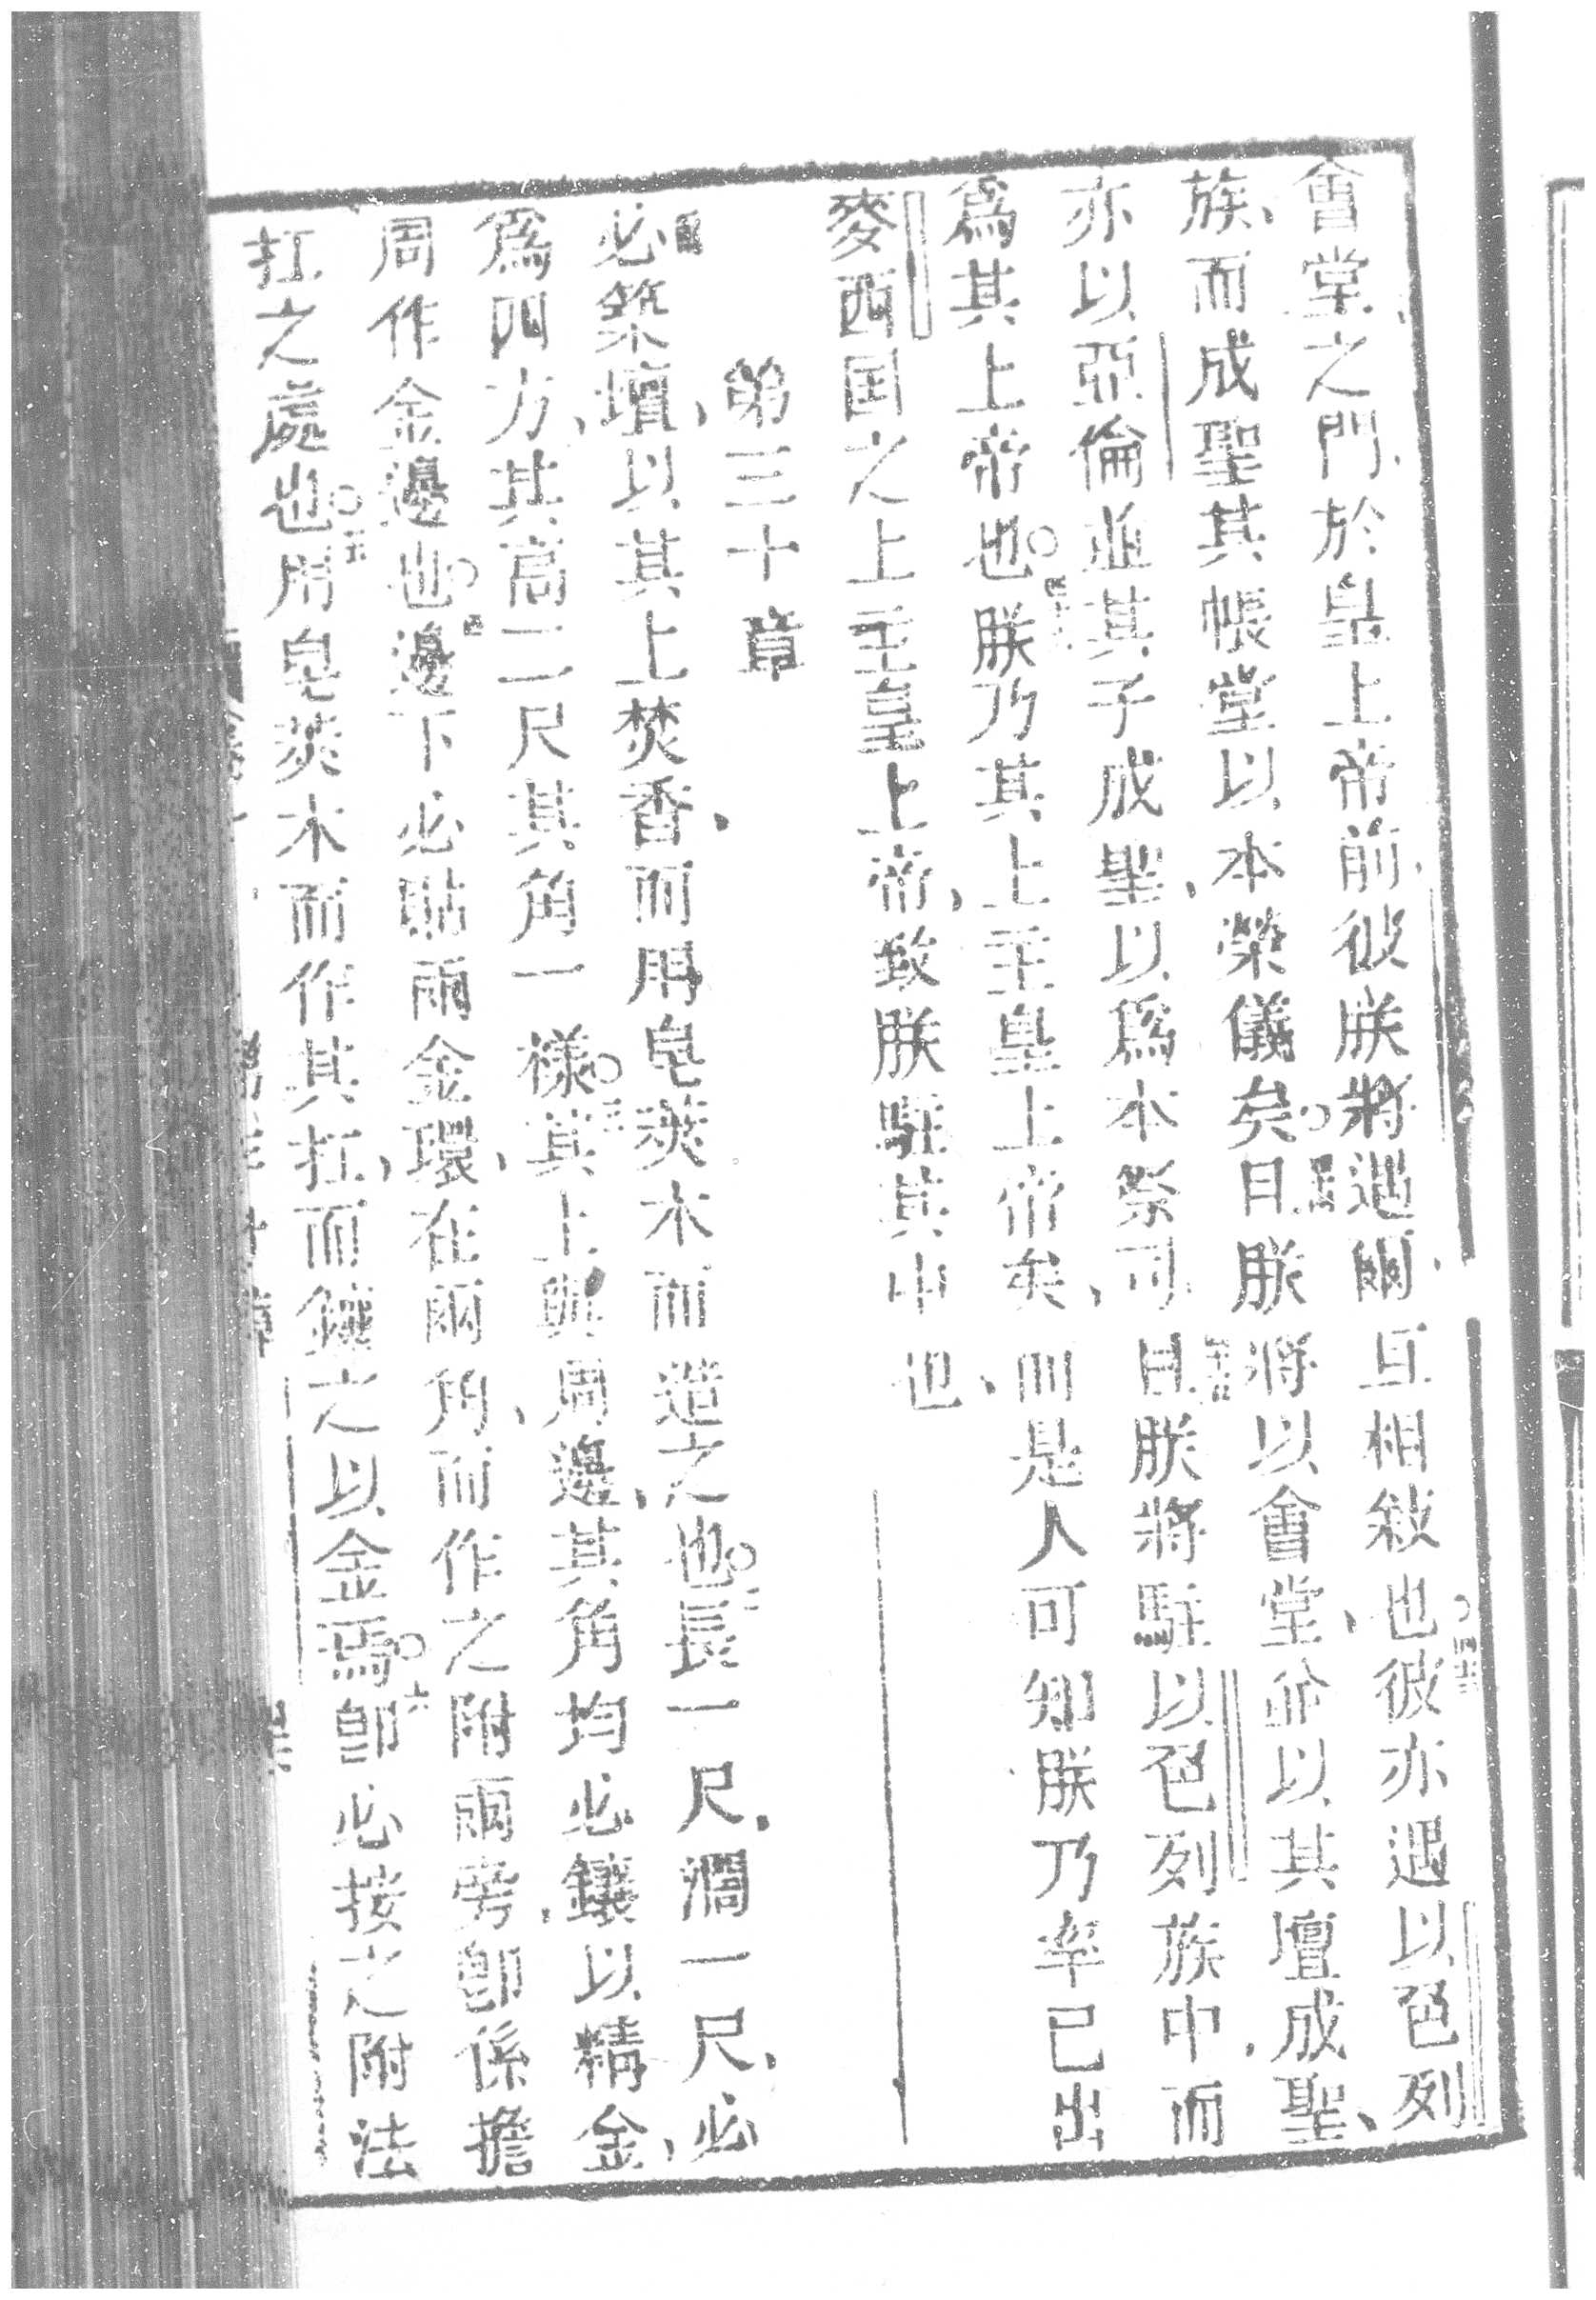 會堂之門、於皇上帝前、彼朕將遇爾、互相敍也、彼亦遇以色列
族、而成聖其帳堂以本榮儀矣、○曰朕將以會堂、並以其壇成聖、
亦以亞倫並其子成聖、以爲本祭司、○且朕將駐以色列族中、而
爲其上帝也○朕乃其上主皇上帝矣、而是人可知朕乃率已出
麥西国之上主皇上帝、致朕駐其中也、
第三十章
必築壇、以其上焚香、而用皂莢木而造之也○二長一尺、濶一尺、必
爲四方、其高二尺其角一樣○三其上與周邊、其角均必鑲以精金、
周作金邊也○四邊下必貼兩金環、在兩角、而作之附兩旁、卽係擔
扛之處也○五用皂莢木而作其扛、而鑲之以金焉○六卽必按之附法